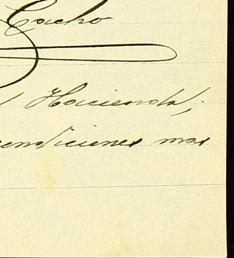 Cacho
Hacienda;
condiciones mas